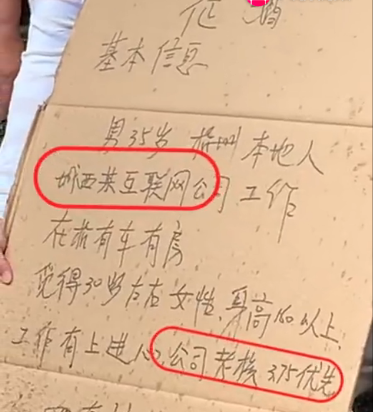 征婚
基本信息
男35岁 杭州本地人
城西某互联网公司工作
在杭有车有房
觅得30岁左右女性,身高160以上,
工作有上进心,公司考核375优先